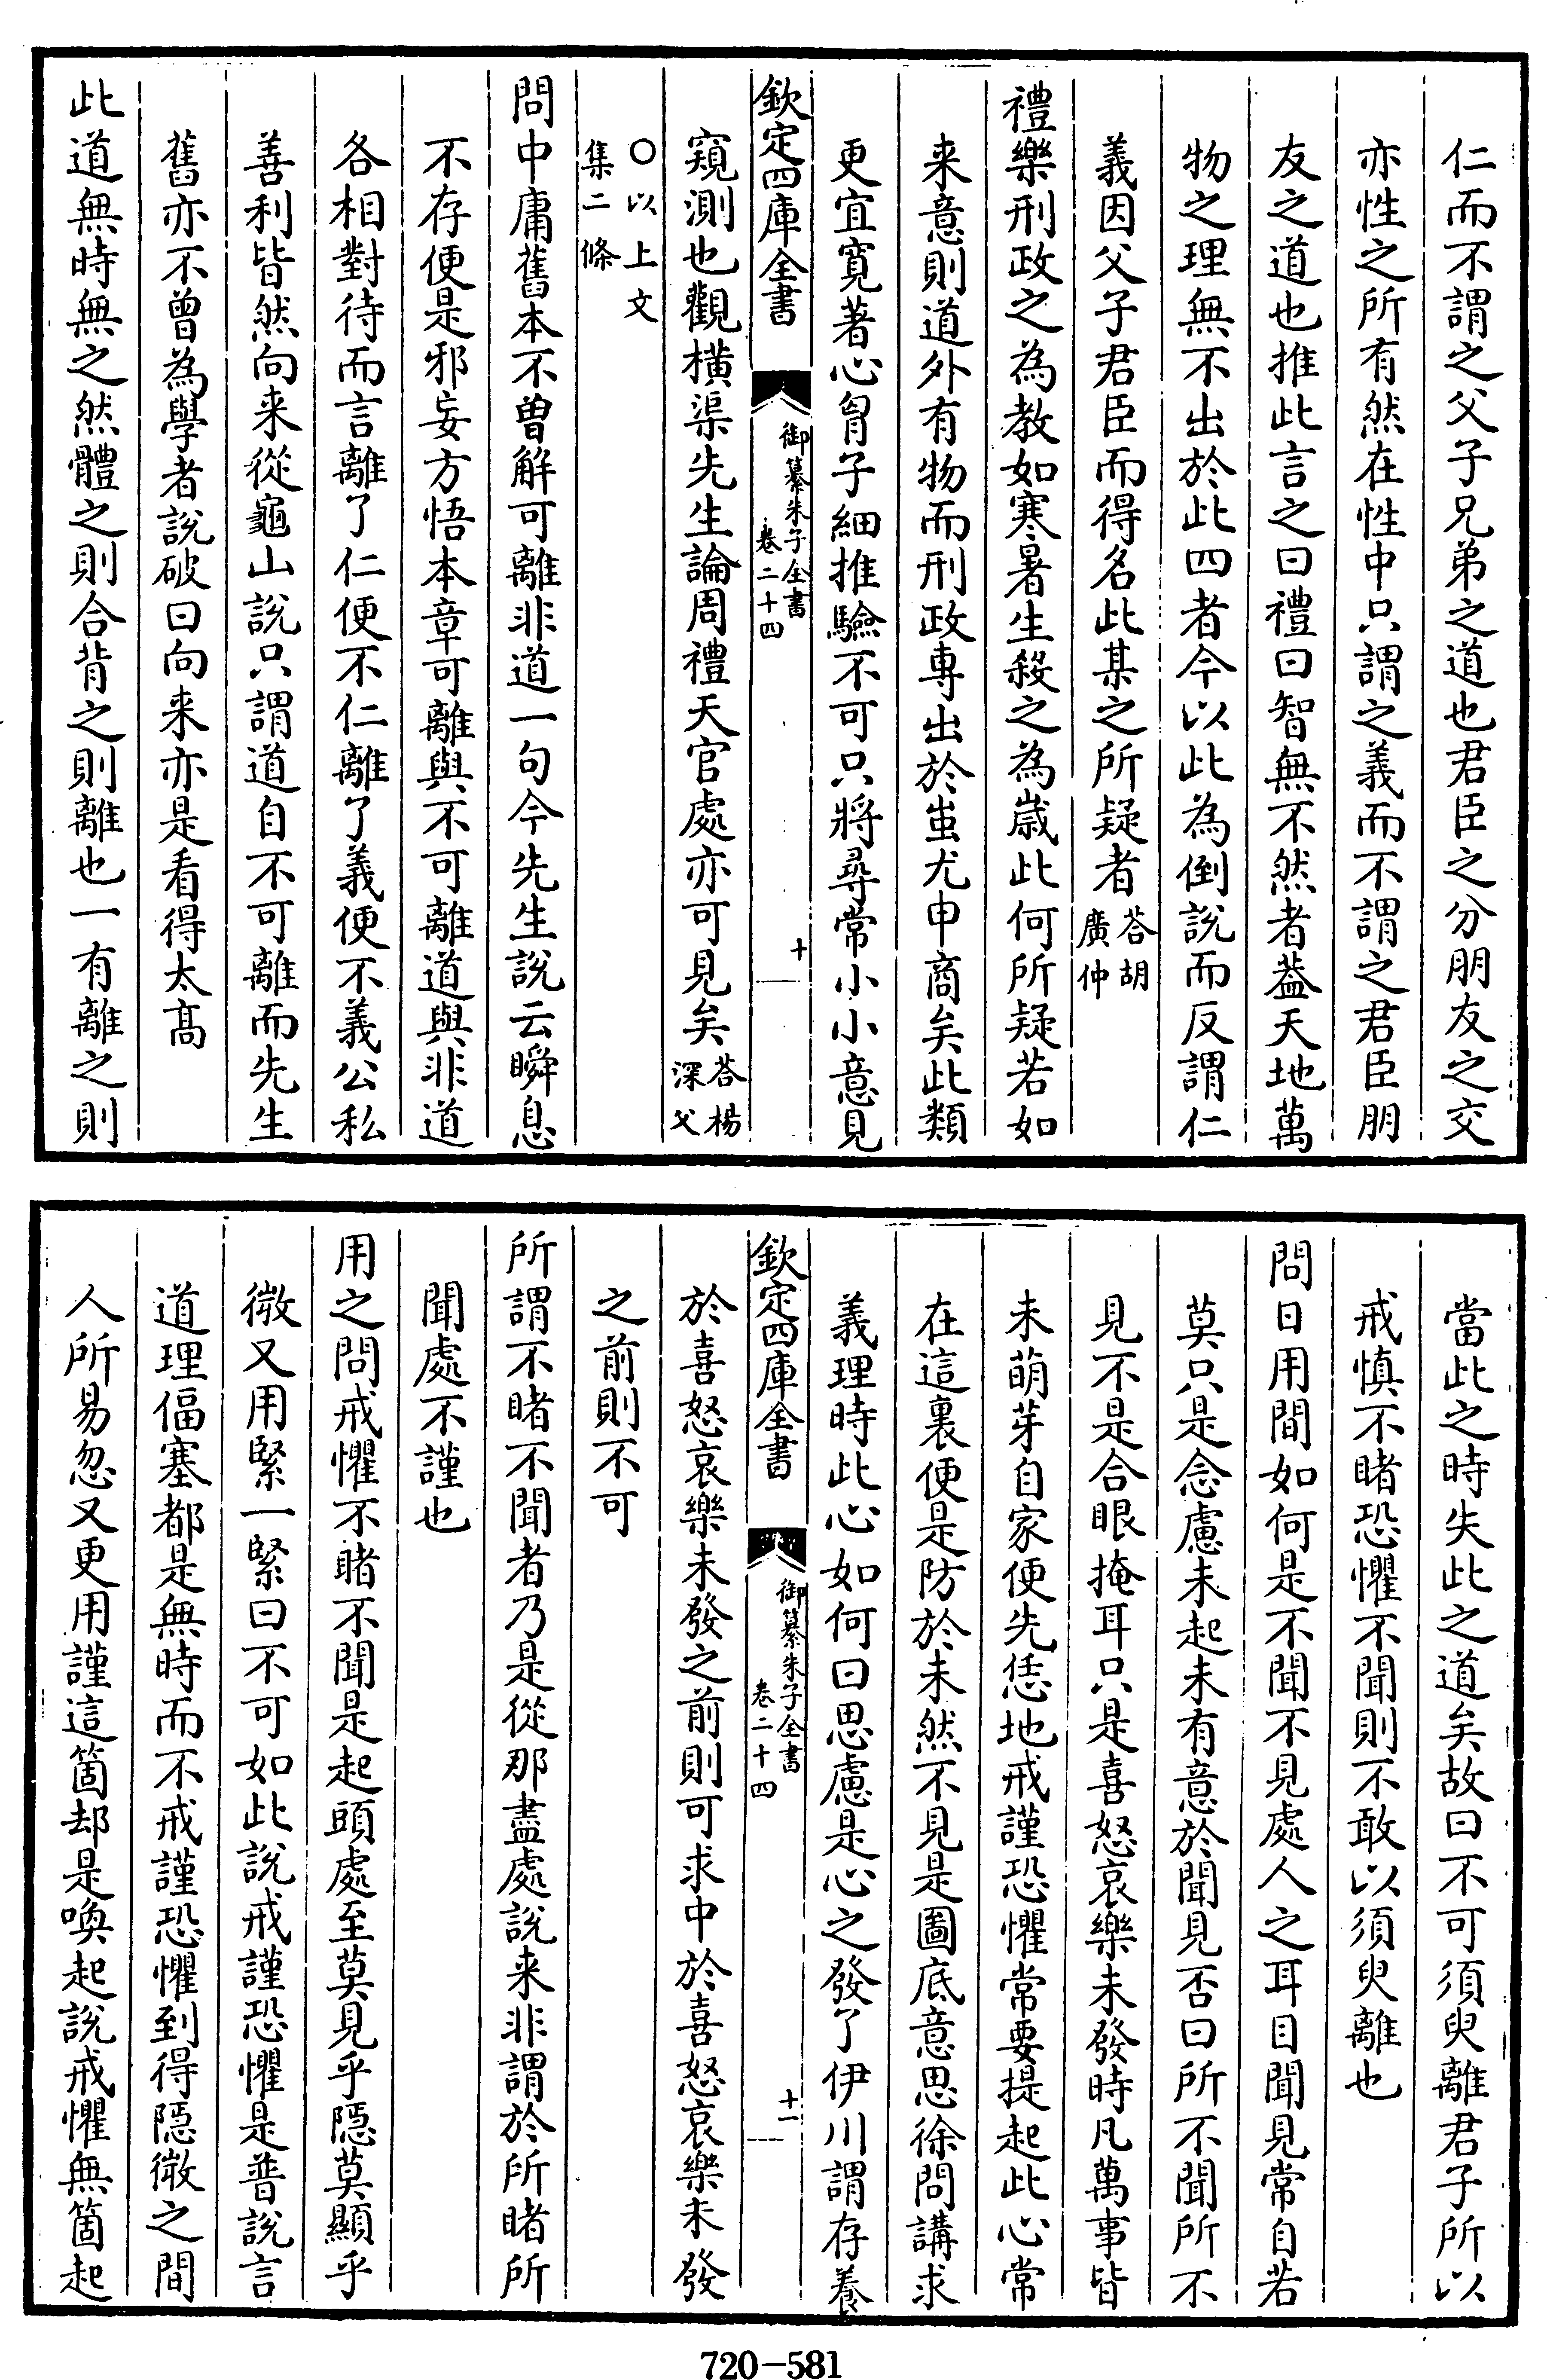 仁而不謂之父子兄弟之道也君臣之分朋友之交
亦性之所有然在性中只謂之義而不謂之君臣朋
友之道也推此言之曰禮曰智無不然者葢天地萬
物之理無不出於此四者今以此為倒說而反謂仁
義因父子君臣而得名此某之所疑者答胡廣仲
禮樂刑政之為教如寒暑生殺之為歲此何所疑若如
来意則道外有物而刑政専出於蚩尤申商矣此類
更宜寛著心胷子細推驗不可只將尋常小小意見
欽定四庫全書
御纂朱子全書
卷二十四
十
窺測也觀橫渠先生論周禮天官處亦可見矣答楊深父
○以上文
集二條
問中庸舊本不曾解可離非道一句今先生說云瞬息
不存便是邪妄方悟本章可離與不可離道與非道
各相對待而言離了仁便不仁離了義便不義公私
善利皆然向来從龜山說只謂道自不可離而先生
舊亦不曾為學者說破曰向来亦是看得太髙
此道無時無之然體之則合背之則離也一有離之則
當此之時失此之道矣故曰不可須臾離君子所以
戒慎不睹恐懼不聞則不敢以須臾離也
問日用間如何是不聞不見處人之耳目聞見常自若
莫只是念慮未起未有意於聞見否曰所不聞所不
見不是合眼掩耳只是喜怒哀樂未發時凡萬事皆
未萌芽自家便先恁地戒謹恐懼常要提起此心常
在這裏便是防於未然不見是圖底意思徐問講求
義理時此心如何曰思慮是心之發了伊川謂存養
欽定四庫全書
御纂朱子全書
卷二十四
十一
於喜怒哀樂未發之前則可求中於喜怒哀樂未發
之前則不可
所謂不睹不聞者乃是從那盡處說来非謂於所睹所
聞處不謹也
用之問戒懼不睹不聞是起頭處至莫見乎隱莫顯乎
微又用緊一緊曰不可如此說戒謹恐懼是普說言
道理偪塞都是無時而不戒謹恐懼到得隱微之間
人所易忽又更用謹這箇却是喚起說戒懼無箇起
720-581